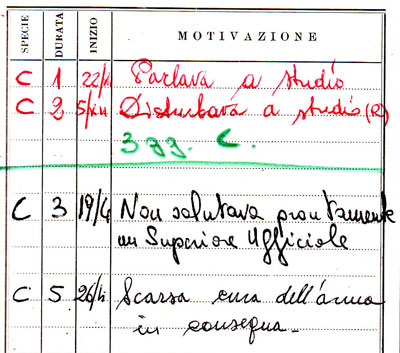 SPECIE DURATA INIZIO MOTIVAZIONE
C 1 22/x Parlava a studio
C 2 5/XII Disturbava a studio (R)
3 gg. C.
C 3 19/4 Non salutava prontamente
un Superiore Ufficiale
C 5 26/4 Scarsa cura dell'arma
in consegna.